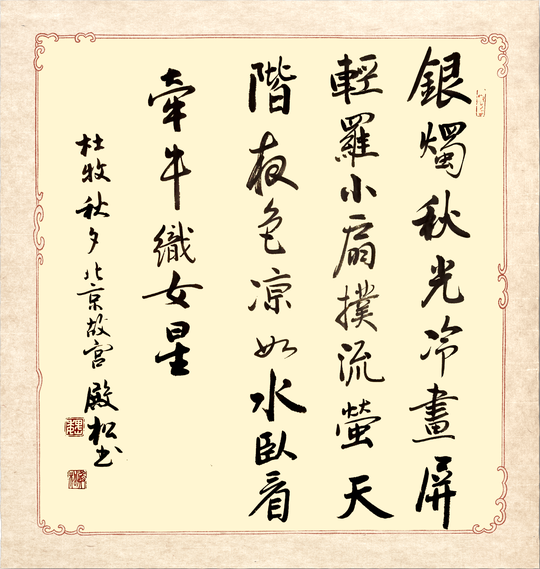 銀燭秋光冷畫屏
輕羅小扇撲流螢天
階夜色涼如水臥看
牽牛織女星
杜牧秋夕北京故宮殿松书